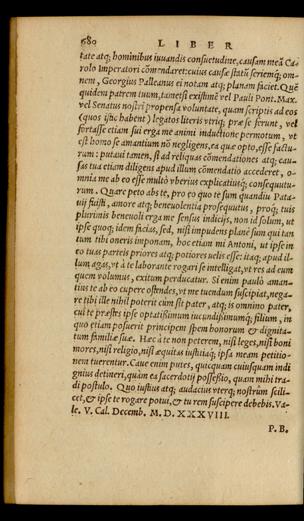 680 LIBER
tate atq; hominibus iuuandis consuetudine, causam meā Ca-
rolo Imperatori cōmendaret: cuius causæ statū seriemq; om-
nem, Georgius Palleanus ei notam atq; planam faciet. Quē
quidem patrem tuum, tametsi existimē vel Pauli Pont. Max.
vel Senatus nostri propensa voluntate, quam scriptis ad eos
(quos ijsc habent) legatos literis vtriq; præ se ferunt, vel
fortasse etiam sui erga me animi inductione permotum, vt
est homo se amantium nō negligens, ea quæ opto, esse factu-
rum: putaui tamen, si ad reliquas cōmendationes atq; cau-
sas tua etiam diligens apud illum cōmendatio accederet, o-
mnia me ab eo esse multò vberius explicatiusq; consequutu-
rum. Quare peto abs te, pro eo quo te sum quandiu Pata-
uij fuisti, amore atq; beneuolentia prosequutus, proq; tuis
plurimis beneuoli erga me sensus indicijs, non id solum, ut
ipse quoq; idem facias, sed, nisi impudens planè sum qui tan
tum tibi oneris imponam, hoc etiam mi Antoni, ut ipse in
eo tuas parteis priores atq; potiores uelis esse: itaq; apud il-
lum agas, vt à te laborante rogari se intelligat, vt res ad eum
quem volumus, exitum perducatur. Si enim paulò aman-
tius te ab eo cupere ostendes, vt me tuendum suscipiat, nega-
re tibi ille nihil poterit cùm sit pater, atq; is omnino pater,
cui te præstes ipse optatissimum iucundissimumq; filium, in
quo etiam posuerit principem spem honorum & dignita-
tum familiæ suæ. Hæc à te non peterem, nisi leges, nisi boni
mores, nisi religio, nisi æquitas iustitiaq; ipsa meam petitio-
nem tuerentur. Caue enim putes, quicquam cuiusquam indi
gnius detineri, quàm ea sacerdotij possessio, quam mihi tra-
di postulo. Quo iustius atq; audacius vterq; nostrûm scili-
cet, & ipse te rogare potui, & tu rem suscipere debebis. Va-
le. V. Cal. Decemb. M. D. XXXVIII.
P. B.